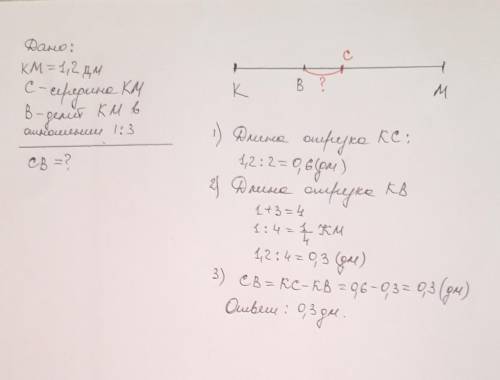 Дано:
КМ = 1,2 дм
С - середина КМ
В - делит КМ в
отношении 1:3
СВ = ?
С
К В ? М
1) Длина отрезка КС:
1,2 : 2 = 0,6 (дм)
2) Длина отрезка КВ
1 + 3 = 4
1 : 4 = 1/4 КМ
1,2 : 4 = 0,3 (дм)
3) СВ = КС - КВ = 0,6 - 0,3 = 0,3 (дм)
Ответ: 0,3 дм.